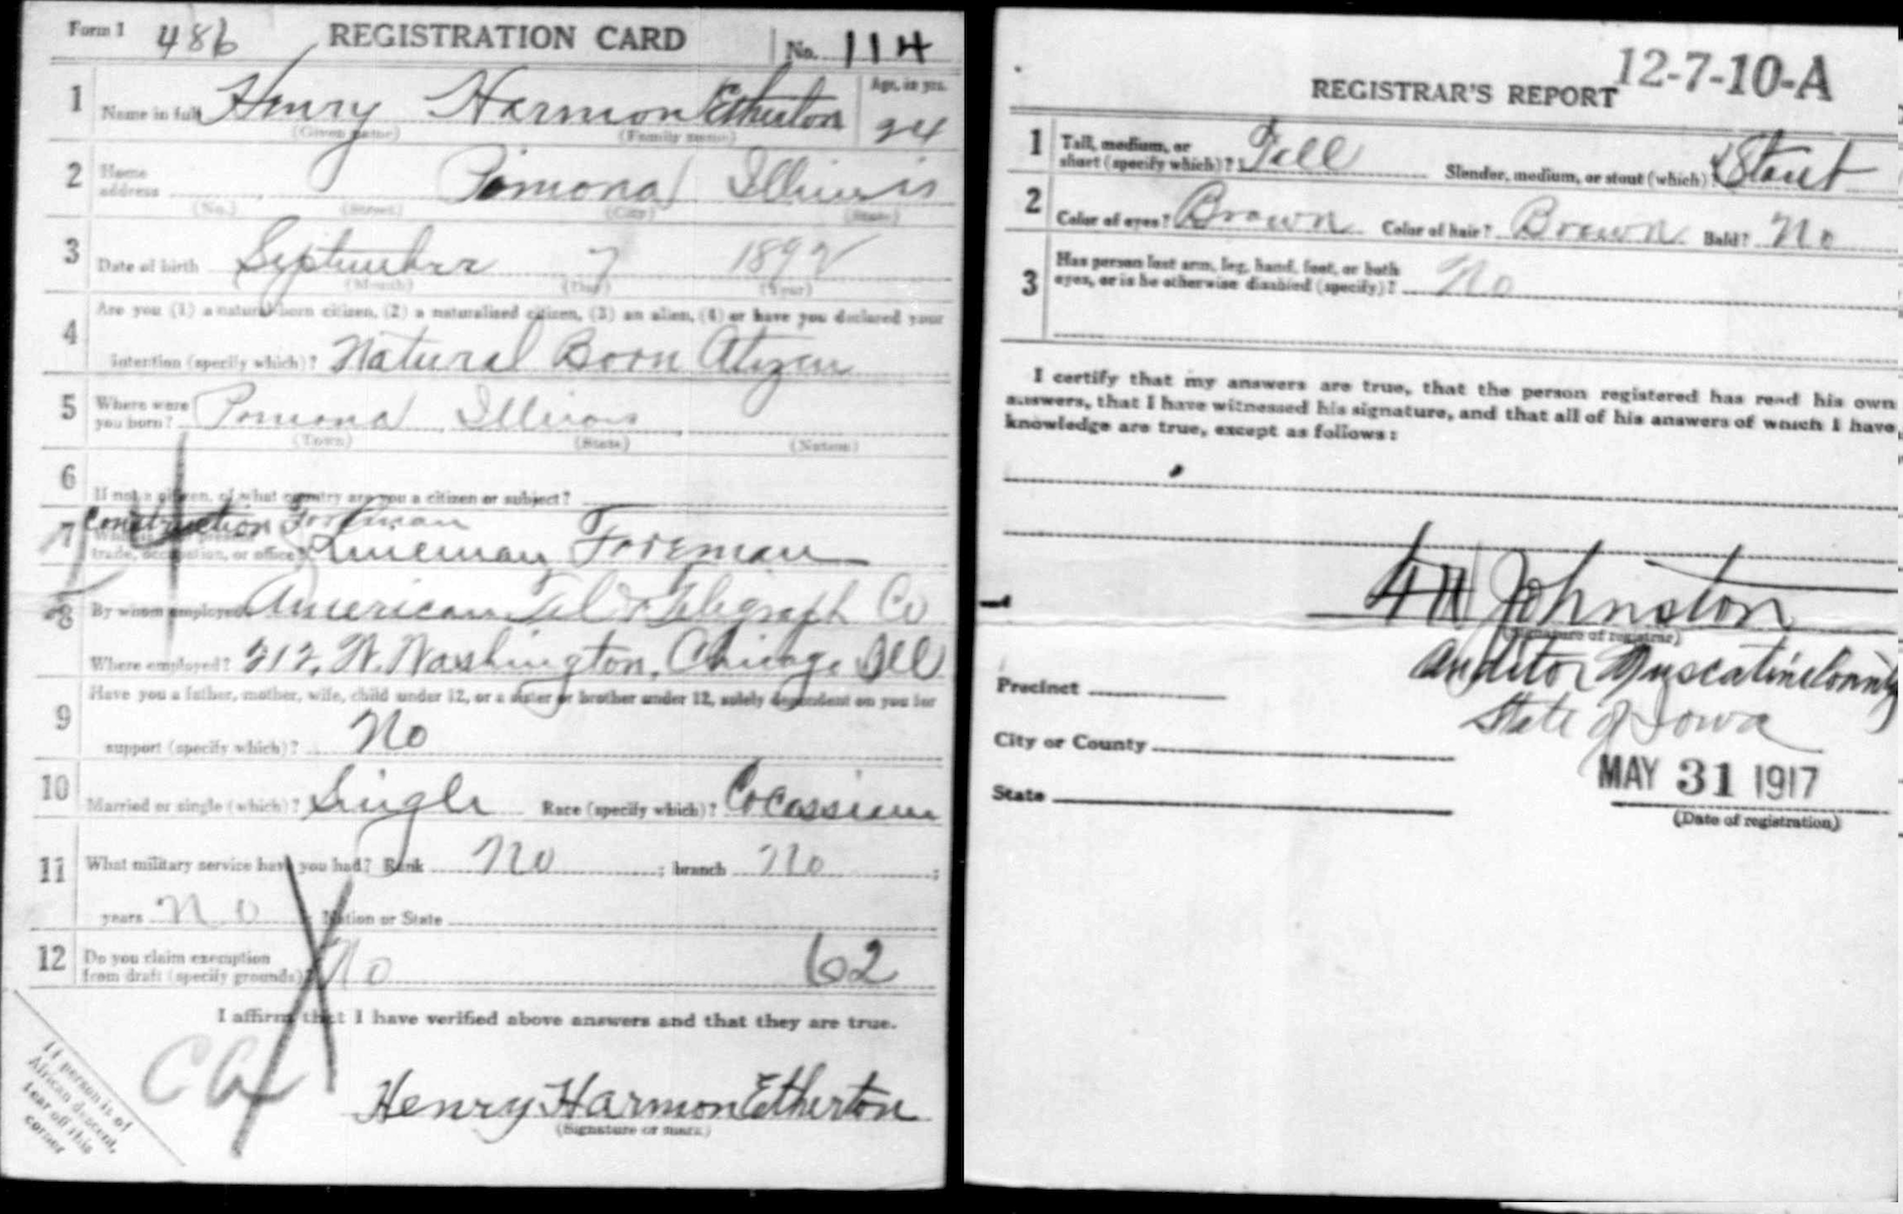 Form 1 486 REGISTRATION CARD No. 114
1 Name in full Henry Harmon Etherton Age, in yrs. 24
(Given name) (Family name)
2 Home address Pomona Illinois
(No.) (Street) (City) (State)
3 Date of birth September 7 1892
(Month) (Day) (Year)
Are you (1) a natural born citizen, (2) a naturalized citizen, (3) an alien, (4) or have you declared your
4 intention (specify which)? Natural Born Citizen
5 Where were you born? Pomona Illinois
(Town) (State) (Nation)
6 If not a citizen, of what country are you a citizen or subject?
Construction Foreman
7 trade, occupation, or office? Lineman Foreman
8 By whom employed? American Tel & Telegraph Co
Where employed? 212. W. Washington. Chicago Ill
Have you a father, mother, wife, child under 12, or a sister or brother under 12, solely dependent on you for
9 support (specify which)? No
10 Married or single (which)? Single Race (specify which)? Cocassian
11 What military service have you had? Rank No ; branch No ;
years No ; Nation or State
12 Do you claim exemption
from draft (specify grounds)? No 62
I affirm that I have verified above answers and that they are true.
Henry Harmon Etherton
(Signature or mark)
If person is of
African descent,
tear off this
corner
12-7-10-A
REGISTRAR'S REPORT
1 Tall, medium, or
short (specify which)? Tall Slender, medium, or stout (which)? Stout
2 Color of eyes? Brown Color of hair? Brown Bald? No
3 Has person lost arm, leg, hand, foot, or both
eyes, or is he otherwise disabled (specify)? No
I certify that my answers are true, that the person registered has read his own
answers, that I have witnessed his signature, and that all of his answers of which I have
knowledge are true, except as follows:
Johnston
(Signature of registrar)
Auditor Muscatine County
Precinct
State of Iowa
City or County
MAY 31 1917
State
(Date of registration)